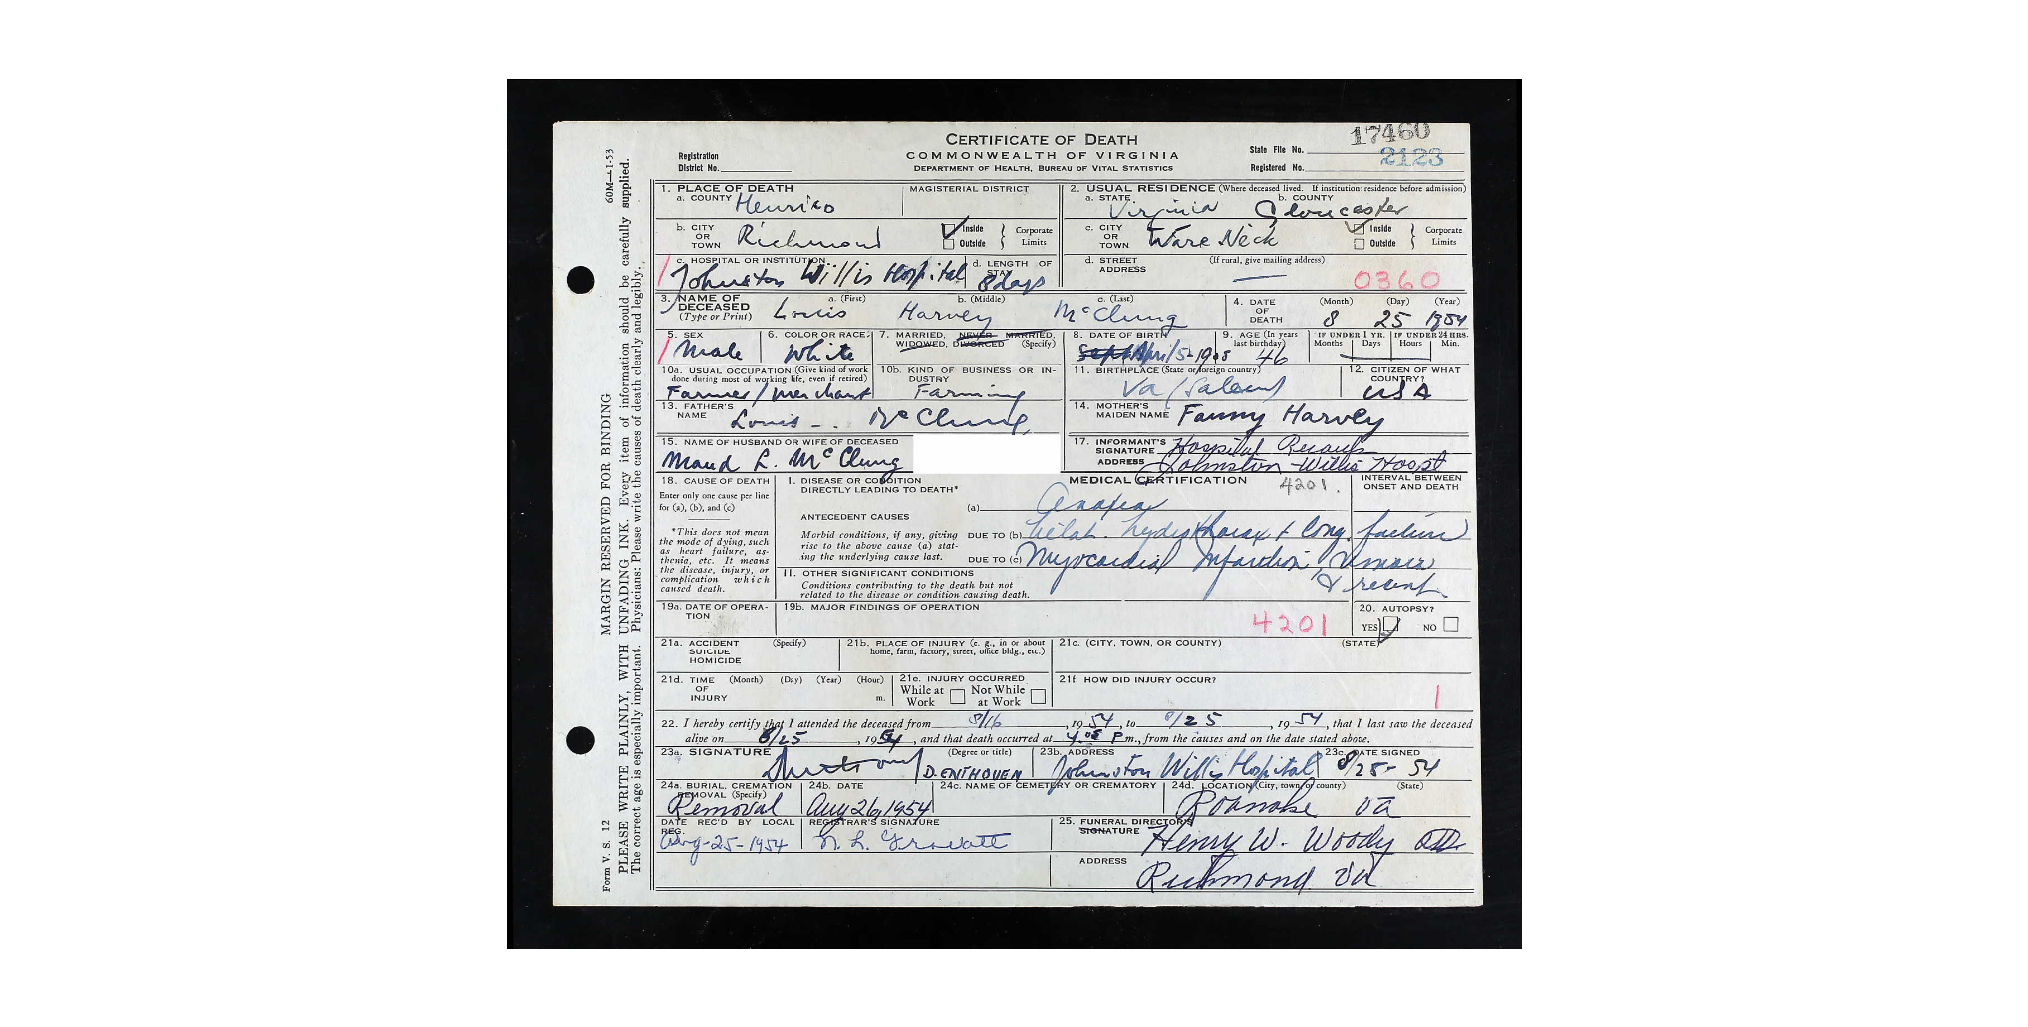 CERTIFICATE OF DEATH
COMMONWEALTH OF VIRGINIA
DEPARTMENT OF HEALTH, BUREAU OF VITAL STATISTICS
Registration District No.
State File No. 17460
Registered No. 2123
Form V. S. 12 MARGIN RESERVED FOR BINDING 60M—1-53
PLEASE WRITE PLAINLY, WITH UNFADING INK. Every item of information should be carefully supplied.
The correct age is especially important. Physicians: Please write the causes of death clearly and legibly.
1. PLACE OF DEATH
a. COUNTY Henrico
MAGISTERIAL DISTRICT
2. USUAL RESIDENCE (Where deceased lived. If institution: residence before admission)
a. STATE Virginia b. COUNTY Gloucester
b. CITY OR TOWN Richmond
Inside Outside Corporate Limits
c. CITY OR TOWN Ware Neck
Inside Outside Corporate Limits
c. HOSPITAL OR INSTITUTION Johnston Willis Hospital
d. LENGTH OF STAY 8 days
d. STREET ADDRESS (If rural, give mailing address) —
0360
3. NAME OF DECEASED (Type or Print)
a. (First) Louis b. (Middle) Harvey c. (Last) McClung
4. DATE OF DEATH (Month) (Day) (Year) 8 25 1954
5. SEX Male
6. COLOR OR RACE White
7. MARRIED, NEVER MARRIED, WIDOWED, DIVORCED (Specify)
8. DATE OF BIRTH Sept April 5-1908
9. AGE (In years last birthday) 46
IF UNDER 1 YR. Months Days
IF UNDER 24 HRS. Hours Min.
10a. USUAL OCCUPATION (Give kind of work done during most of working life, even if retired) Farmer/Merchant
10b. KIND OF BUSINESS OR INDUSTRY Farming
11. BIRTHPLACE (State or foreign country) Va (Salem)
12. CITIZEN OF WHAT COUNTRY? USA
13. FATHER'S NAME Louis -- McClung
14. MOTHER'S MAIDEN NAME Fanny Harvey
15. NAME OF HUSBAND OR WIFE OF DECEASED Maud L. McClung
17. INFORMANT'S SIGNATURE Hospital Records
ADDRESS Johnston-Willis Hospt
18. CAUSE OF DEATH
Enter only one cause per line for (a), (b), and (c)
*This does not mean the mode of dying, such as heart failure, asthenia, etc. It means the disease, injury, or complication which caused death.
MEDICAL CERTIFICATION 4201.
INTERVAL BETWEEN ONSET AND DEATH
I. DISEASE OR CONDITION DIRECTLY LEADING TO DEATH*
(a) Anoxia
ANTECEDENT CAUSES
Morbid conditions, if any, giving rise to the above cause (a) stating the underlying cause last.
DUE TO (b) bilat. hydrothorax + Cong. failure
DUE TO (c) Myocardial Infarction, remote & recent
II. OTHER SIGNIFICANT CONDITIONS
Conditions contributing to the death but not related to the disease or condition causing death.
19a. DATE OF OPERATION
19b. MAJOR FINDINGS OF OPERATION
4201
20. AUTOPSY? YES NO
21a. ACCIDENT SUICIDE HOMICIDE (Specify)
21b. PLACE OF INJURY (e. g., in or about home, farm, factory, street, office bldg., etc.)
21c. (CITY, TOWN, OR COUNTY) (STATE)
21d. TIME OF INJURY (Month) (Day) (Year) (Hour) m.
21e. INJURY OCCURRED While at Work Not While at Work
21f HOW DID INJURY OCCUR?
1
22. I hereby certify that I attended the deceased from 8/16, 1954, to 8/25, 1954, that I last saw the deceased
alive on 8/25, 1954, and that death occurred at 4:05 P m., from the causes and on the date stated above.
23a. SIGNATURE (Degree or title) D. ENTHOVEN
23b. ADDRESS Johnston Willis Hospital
23c. DATE SIGNED 8/25-54
24a. BURIAL, CREMATION REMOVAL (Specify) Removal
24b. DATE Aug 26, 1954
24c. NAME OF CEMETERY OR CREMATORY
24d. LOCATION (City, town, or county) (State) Roanoke Va
DATE REC'D BY LOCAL REG. Aug-25-1954
REGISTRAR'S SIGNATURE
25. FUNERAL DIRECTOR'S SIGNATURE Henry W. Woody
ADDRESS Richmond Va